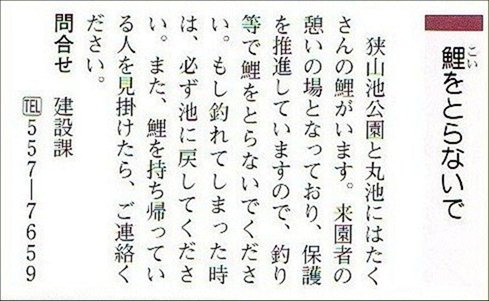 鯉をとらないで
こい
狭山池公園と丸池にはたく
さんの鯉がいます。来園者の
憩いの場となっており、保護
を推進していますので、釣り
等で鯉をとらないでくださ
い。もし釣れてしまった時
は、必ず池に戻してくださ
い。また、鯉を持ち帰ってい
る人を見掛けたら、ご連絡く
ださい。
問合せ 建設課
TEL557―7659